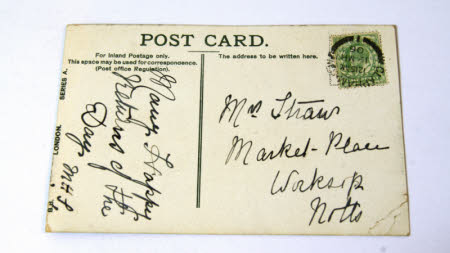 POST CARD.
For Inland Postage only.
This space may be used for correspondence.
(Post office Regulation).
The address to be written here.
Many Happy
Returns of the
Day
Mrs Straw
Market-Place
Worksop
Notts
LONDON.
SERIES A.